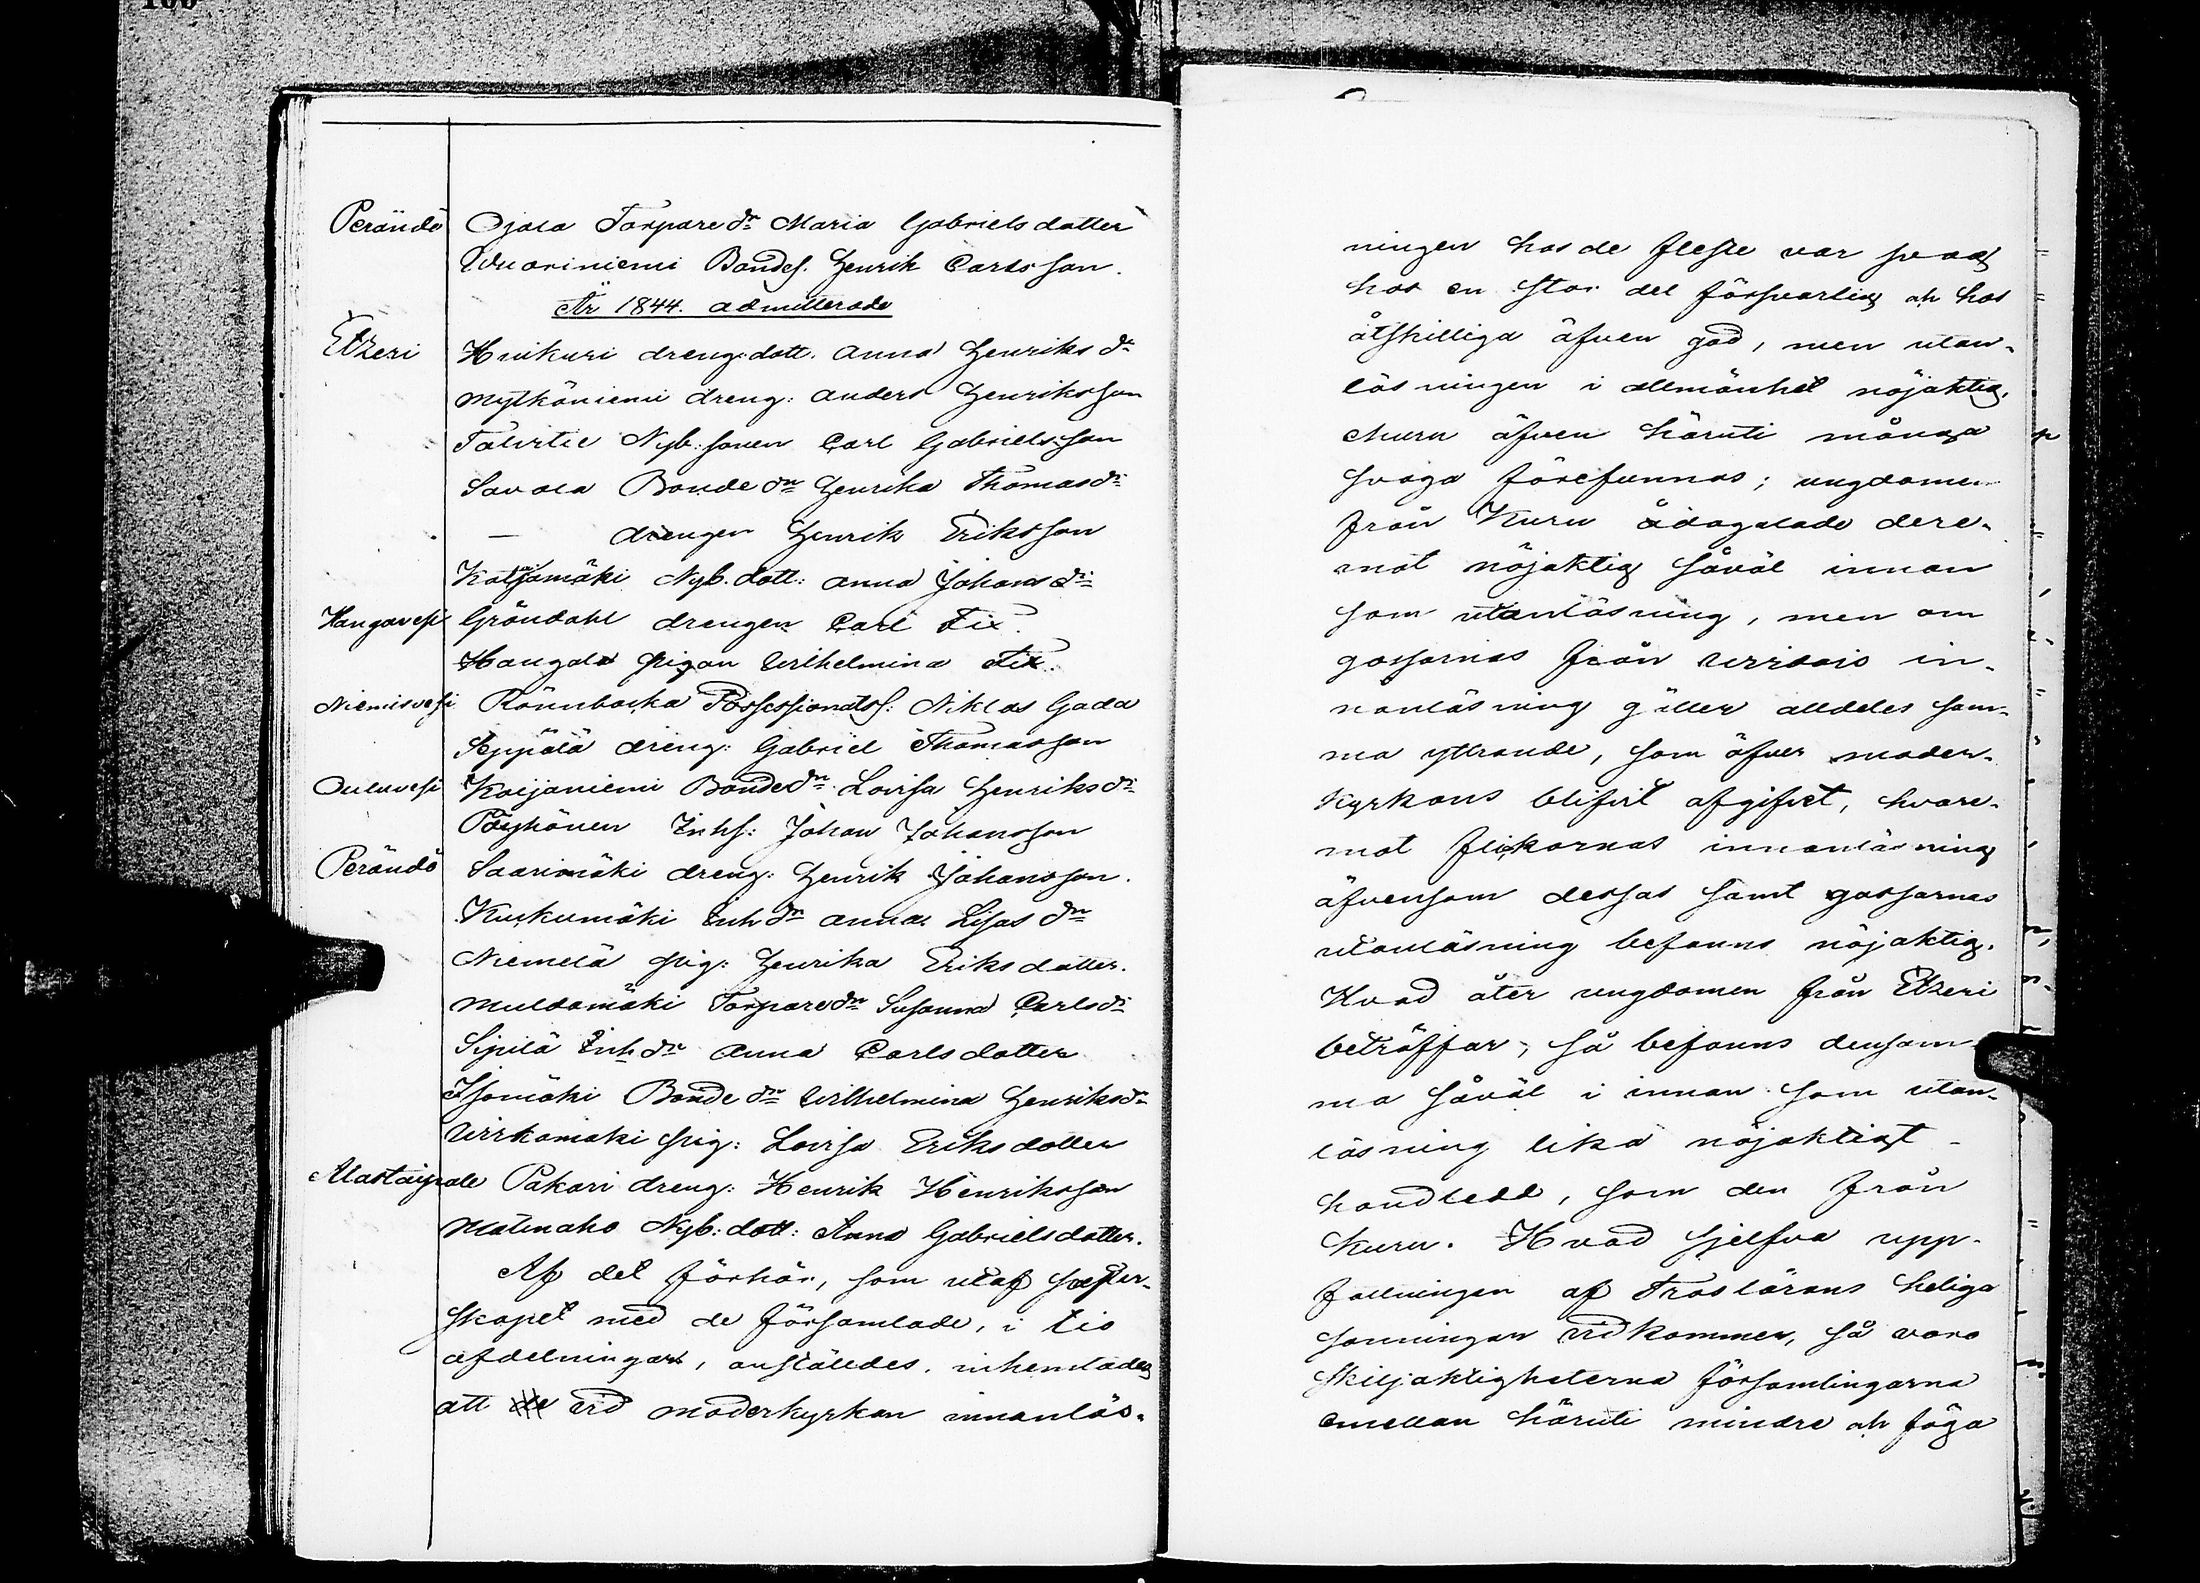 Perändö Ojala Torpare dr Maria Gabrielsdotter
Wuoriniemi Bondes. Henrik Carlsson.
År 1844. admitterade
Etzeri Huikuri dreng: dott. Anna Henriks dr
Mytköniemi dreng: Anders Henriksson
Nyb: sonen Carl Gabrielsson
Savola Bonde dr Henrika Thomasdr
— drengen Henrik Eriksson
Katjamäki Nyb. dott: Anna Johans dr
Hangavesi Gröndahl drengen Carl Fix.
Haugala pigan Wilhelmina Fix.
Niemisvesi Rönnbacka Possessionats: Niklas Gada
Seppälä dreng: Gabriel Thomasson
Ouluvesi Koijaniemi Bondedr Lovisa Henriksdr
Pöyhönen Inhs: Johan Johansson
Perändö Saarimäki dreng: Henrik Johansson.
Kuckumäki Inh dr Anna Lisas dr
Niemelä pig: Henrika Eriksdotter.
Muldamäki Torparedr Susanna Carlsdr
Sipilä Inh dr Anna Carlsdotter
Isomäki Bonde dr Wilhelmina Henriksdr
Wirkamäki pig: Lovisa Eriksdotter
Alastaipale Pakari dreng: Henrik Henriksson
Matinaho Nyb: dott: Anna Gabrielsdotter.
Af det förhör, som utaf prester-
skapet med de församlade, i tio
afdelningar, anställdes, inhemtades
att vid moderkyrkan innanläs-
ningen hos de fleste var svag
hos en stor del försvarlig och hos
åtskilliga äfven god, men utan-
läsningen i allmänhet nöjaktig.
ehuru äfven häruti många
svaga förefunnos; ungdomen
från Kuru ådagalade dere-
mot nöjaktig såväl innan
som utanläsning, men om
gossarnas från Wirdois in-
nanläsning gäller alldeles sam-
ma yttrande, som öfver moder-
kyrkans blifvit afgifvet, hvare-
mot flickornas innanläsning
äfvensom dessas samt gossarnas
utanläsning befanns nöjaktig.
Hvad åter ungdomen från Etzeri
beträffar, så befanns densam-
ma såväl i innan som utan-
läsning lika nöjaktigt
handledd, som den från
Kuru. Hvad sjelfva upp-
fattningen af Troslärans heliga
sanningar vidkommer, så voro
skiljaktigheterna församlingarna
emellan häruti mindre och föga